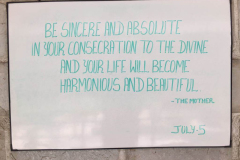 BE SINCERE AND ABSOLUTE
IN YOUR CONSECRATION TO THE DIVINE
AND YOUR LIFE WILL BECOME
HARMONIOUS AND BEAUTIFUL.
- THE MOTHER
JULY-5